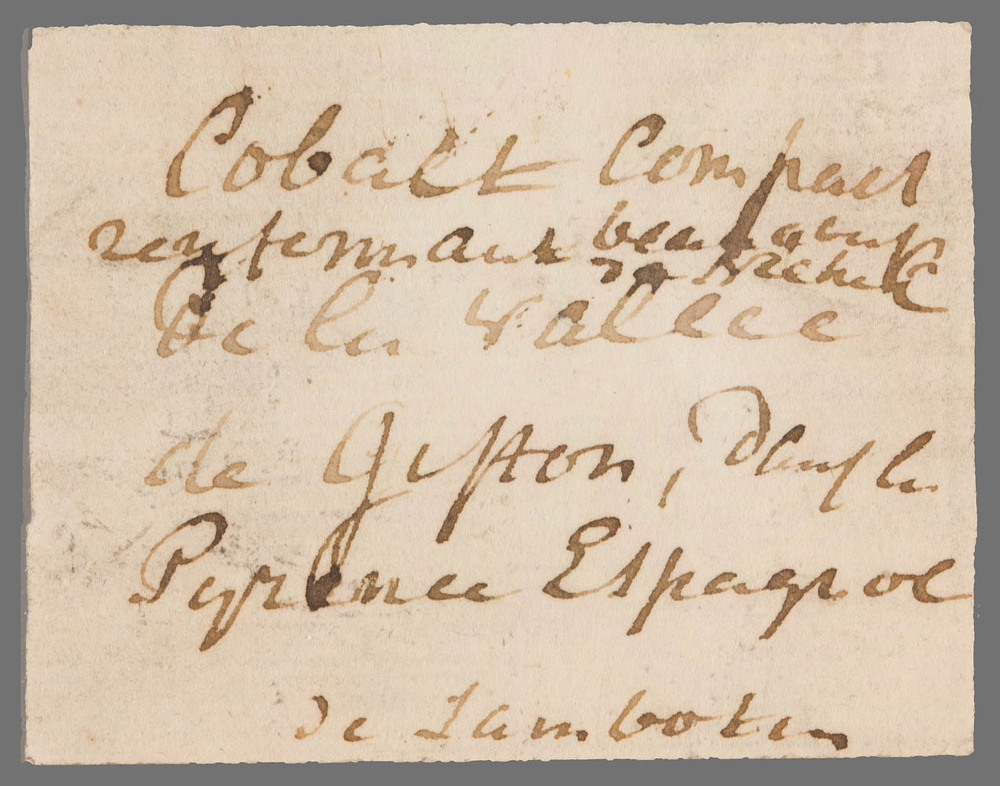 Cobalt Compact
renfermant beaucoup
d'arsenic
De la Vallee
de Giston, Dans la
Pyrenee Espagnole
de